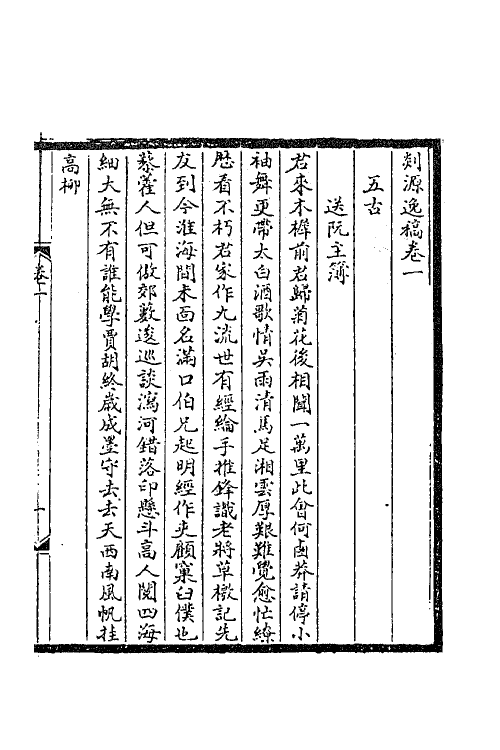 剡源逸稿卷一
五古
送阮主簿
君來木樨前君歸菊花後相聞一萬里此會何鹵莽請停小
袖舞更帶太白酒歌情吳雨清馬足湘雲厚艱難覺愈忙繚
歷看不朽君家作九流世有經綸手推鋒識老將草檄記先
友到今淮海間未面名滿口伯兄起明經作吏顧窠臼僕也
藜藿人但可倣郊藪逡巡談瀉河錯落印懸斗高人閱四海
細大無不有誰能學賈胡終歲成墨守去去天西南風帆挂
高柳
卷一
一